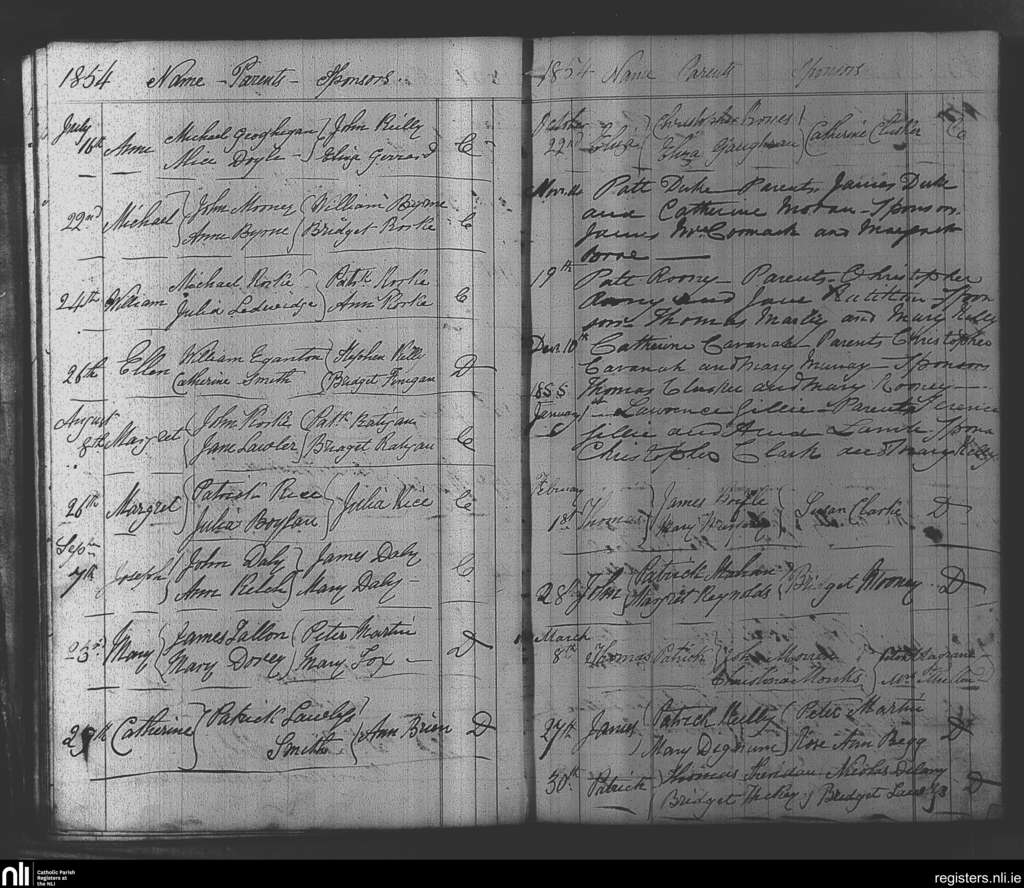 1854 Name - Parents - Sponsors.
July
16th Anne Michael Geoghegan John Reilly C
Alice Doyle - Eliza Gerrard
22nd Michael John Mooney William Byrne C
Anne Byrne Bridget Rorke
24th William Michael Rorke Patk Rorke C
Julia Ledwidge Ann Rorke
26th Ellen William Eganton Stephen Kelly D
Catherine Smith Bridget Finigan
August
8th Margret John Rorke Patk Ratigan C
Jane Lawler Bridget Ratigan
26th Margret Patrick Rice Julia Rice C
Julia Boylan
Sepr
7th Joseph John Daly James Daly C
Ann Mary Daly -
23rd Mary James Tallon Peter Martin D
Mary Dorey Mary Fox -
29th Catherine Patrick Ann Brien D
Smith
1854 Name Parents Sponsors
October
22nd Eliza Christopher Catherine C
Eliza Gaughran
Nov. Patt Duke - Parents James Duke
and Catherine Moran - Sponsors
James McCormack and Margaret
19th Patt Roony - Parents Christopher
Roony and Jane Spon
sors Thomas and Mary Kelly
Decr. 10th Catherine Cavanah - Parents Christopher
Cavanah and Mary Murray - Sponsors
1855 Thomas and Mary Rooney -
January 1st - Lawrence Gillic - Parents Terence
Gillic and Spons
Christopher Clark and Mary Kelly
February
1st Thomas James Boyle Susan Clarke D
Mary
28th John Patrick Mahon Bridget Mooney D
Margret Reynolds
March
8th Thomas Patrick John
Christina Monks
27th James Patrick Reilly Peter Martin D
Mary Rose Ann Begg
30th Patrick Thomas Sheridan Nicolas Delany D
Bridget Hickey Bridget
nli Catholic Parish
Registers at
the NLI
registers.nli.ie